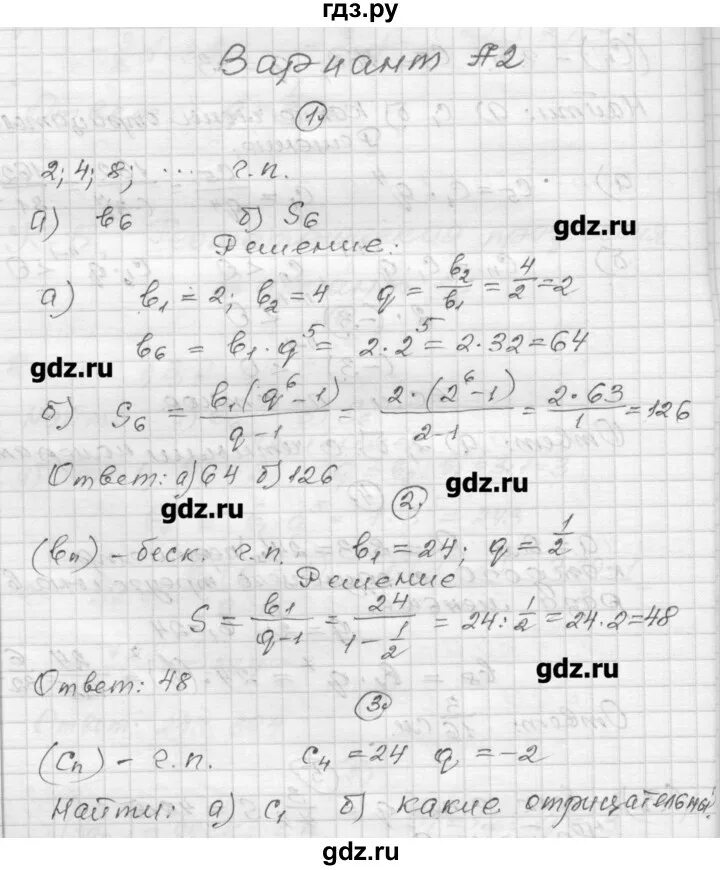 гдз.ру
Вариант А2
1.
2; 4; 8; ... г.п.
а) b6 б) S6
gdz.ru
Решение:
а) b1 = 2; b2 = 4 q = b2/b1 = 4/2 = 2
b6 = b1 · q^5 = 2 · 2^5 = 2 · 32 = 64
gdz.ru
б) S6 = b1(q^6 - 1)/(q - 1) = 2 · (2^6 - 1)/(2 - 1) = 2 · 63/1 = 126
Ответ: а) 64 б) 126
gdz.ru
gdz.ru
2.
(bn) - беск. г.п. b1 = 24; q = 1/2
Решение
S = b1/(q - 1) = 24/(1 - 1/2) = 24 : 1/2 = 24 · 2 = 48
gdz.ru
Ответ: 48
3.
(cn) - г.п. c4 = 24 q = -2
Найти: а) c1 б) какие отрицательны
gdz.ru